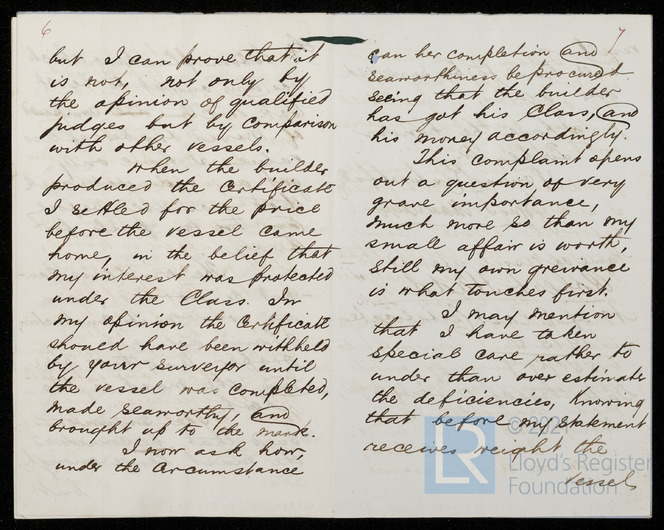 6
but I can prove that it
is not, not only by
the opinion of qualified
judges but by comparison
with other vessels.
When the builder
produced the Certificate
I settled for the price
before the vessel came
home, in the belief that
my interest was protected
under the Class. In
my opinion the Certificate
should have been withheld
by your Surveyor until
the vessel was completed,
made seaworthy, and
brought up to the mark.
I now ask how,
under the Circumstance
7
can her completion and
seaworthiness be procured
seeing that the builder
has got his Class, and
his money accordingly.
This complaint opens
out a question of very
grave importance,
much more so than my
small affair is worth,
still my own greivance
is what touches first.
I may mention
that I have taken
special care rather to
under than over estimate
the deficiencies, Knowing
that before my statement
receives weight the
vessel
LR
Lloyd's Register
Foundation